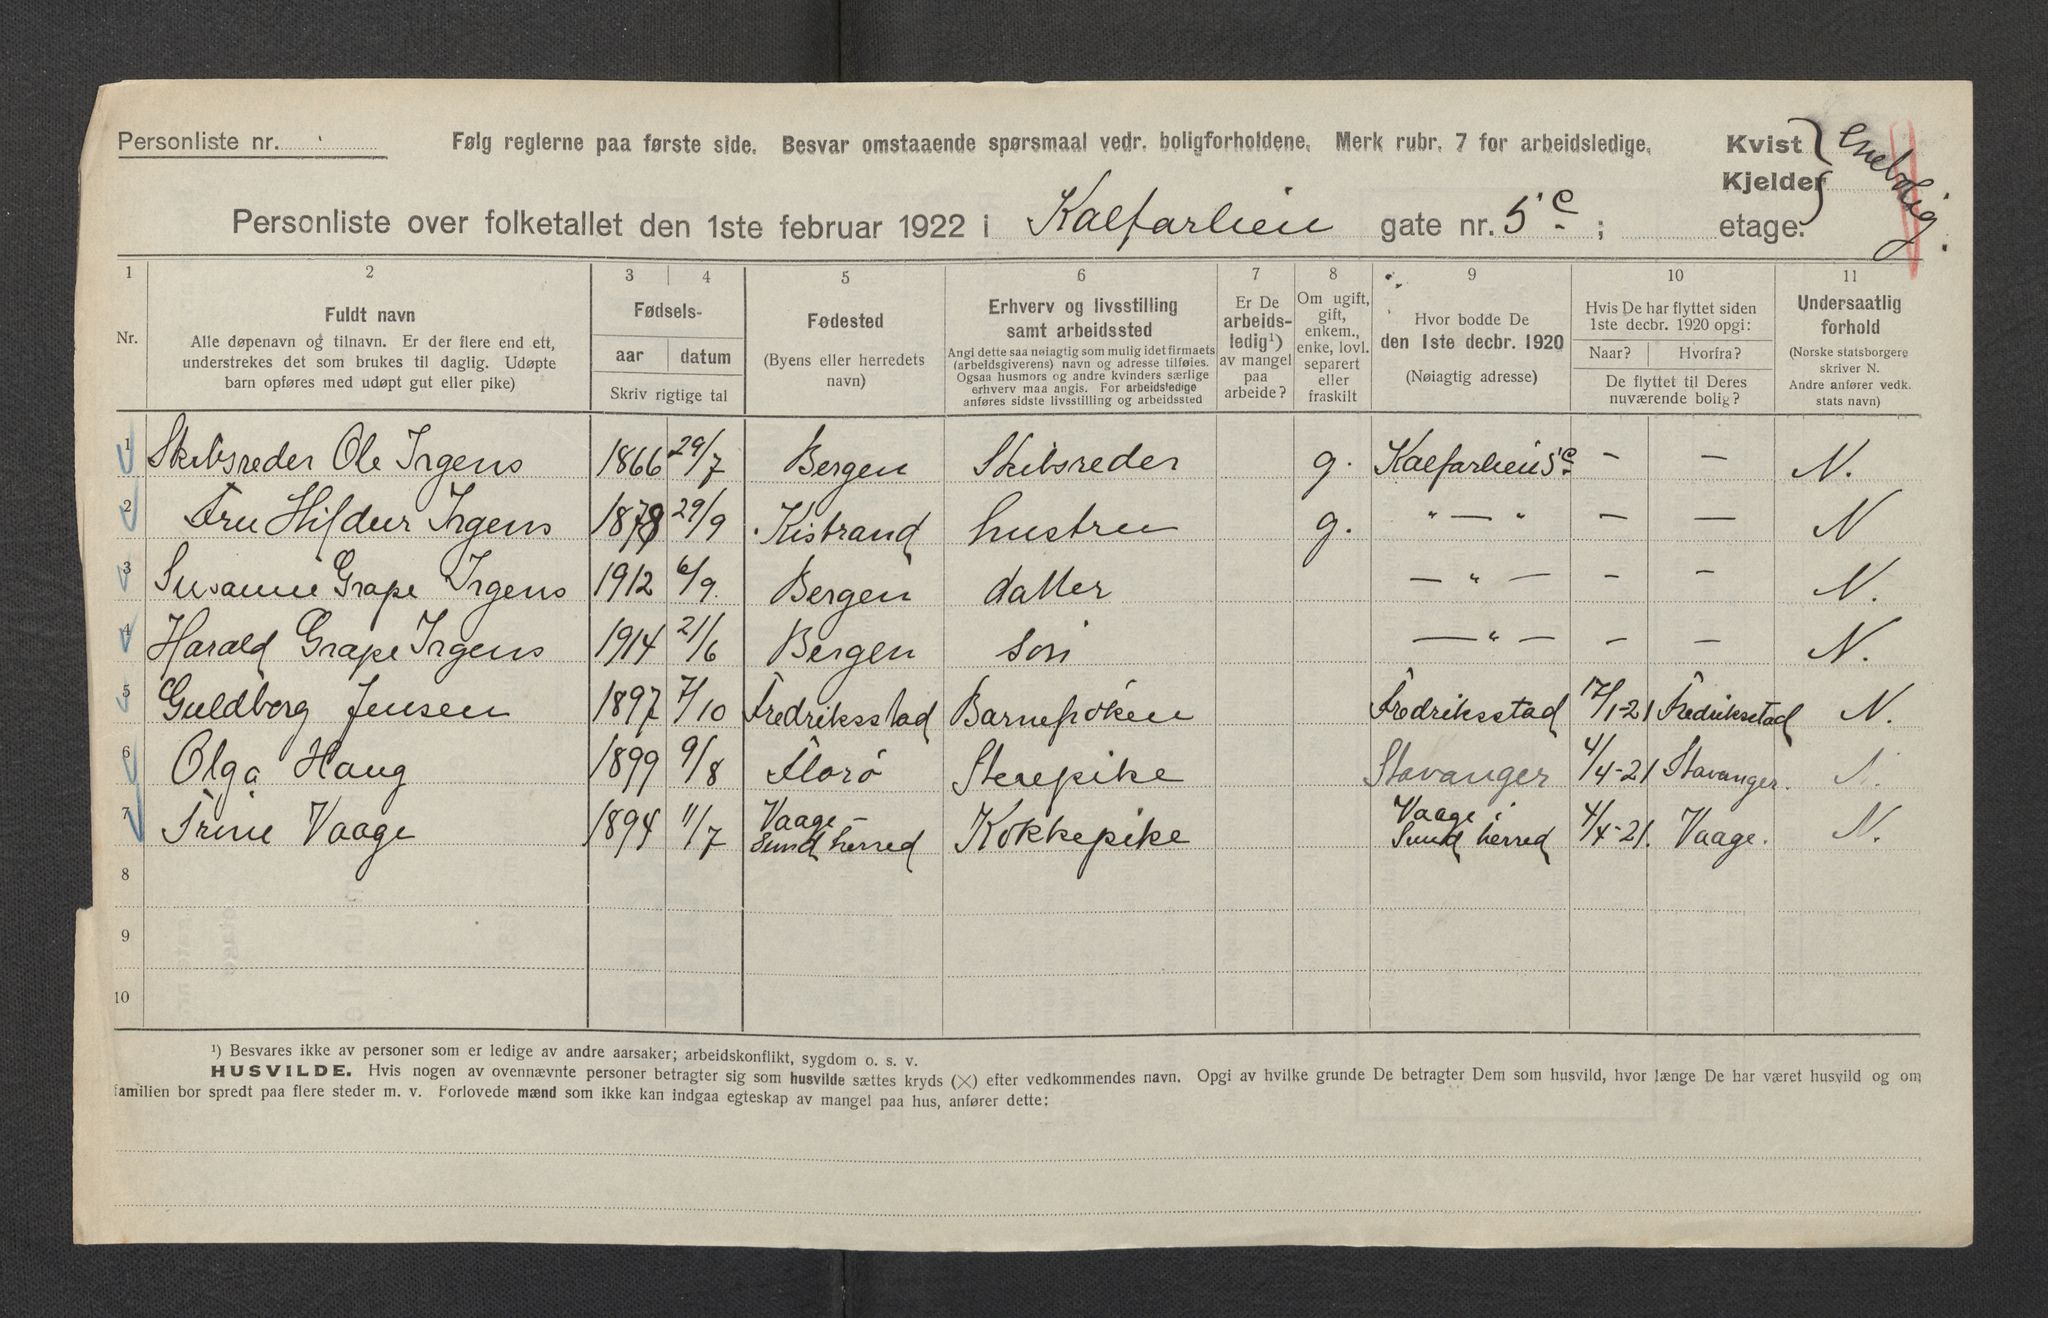 Personliste nr.
Følg reglerne paa første side. Besvar omstaaende spørsmaal vedr. boligforholdene. Merk rubr. 7 for arbeidsledige.
Kvist
Kjelder
Enebolig.
Personliste over folketallet den 1ste februar 1922 i Kalfarlien gate nr. 5 c ; etage.
1 2 3 4 5 6 7 8 9 10 11
Nr.
Fuldt navn
Alle døpenavn og tilnavn. Er der flere end ett,
understrekes det som brukes til daglig. Udøpte
barn opføres med udøpt gut eller pike)
Fødsels-
aar datum
Skriv rigtige tal
Fødested
(Byens eller herredets
navn)
Erhverv og livsstilling
samt arbeidssted
Angi dette saa nøiagtig som mulig idet firmaets
(arbeidsgiverens) navn og adresse tilføies.
Ogsaa husmors og andre kvinders særlige
erhverv maa angis. For arbeidsledige
anføres sidste livsstilling og arbeidssted
Er De
arbeids-
ledig¹)
av mangel
paa
arbeide?
Om ugift,
gift,
enkem.,
enke, lovl.
separert
eller
fraskilt
Hvor bodde De
den 1ste decbr. 1920
(Nøiagtig adresse)
Hvis De har flyttet siden
1ste decbr. 1920 opgi:
Naar? Hvorfra?
De flyttet til Deres
nuværende bolig?
Undersaatlig
forhold
(Norske statsborgere
skriver N.
Andre anfører vedk.
stats navn)
1 Skibsreder Ole Irgens 1866 29/7 Bergen Skibsreder g. Kalfarlien 5 c - - N.
2 Fru Hildur Irgens 1878 29/9 Kistrand hustru g. " — " — — N
3 Susanne Grape Irgens 1912 6/9. Bergen datter — " — - - N.
4 Harald Grape Irgens 1914 21/6 Bergen søn — " — - - N.
5 Guldborg Jensen 1897 7/10 Fredriksstad Barnefrøken Fredriksstad 17/1-21 Fredriksstad N.
6 Olga Haug 1899 9/8 Florø Stuepike Stavanger 4/4-21 Stavanger. N.
7 Trine Vaage 1894 11/7 Vaage - Sund herred Kokkepike Vaage i Sund herred 4/4-21. Vaage. N.
8
9
10
¹) Besvares ikke av personer som er ledige av andre aarsaker; arbeidskonflikt, sygdom o. s. v.
HUSVILDE. Hvis nogen av ovennævnte personer betragter sig som husvilde sættes kryds (×) efter vedkommendes navn. Opgi av hvilke grunde De betragter Dem som husvild, hvor længe De har været husvild og om
familien bor spredt paa flere steder m. v. Forlovede mænd som ikke kan indgaa egteskap av mangel paa hus, anfører dette: